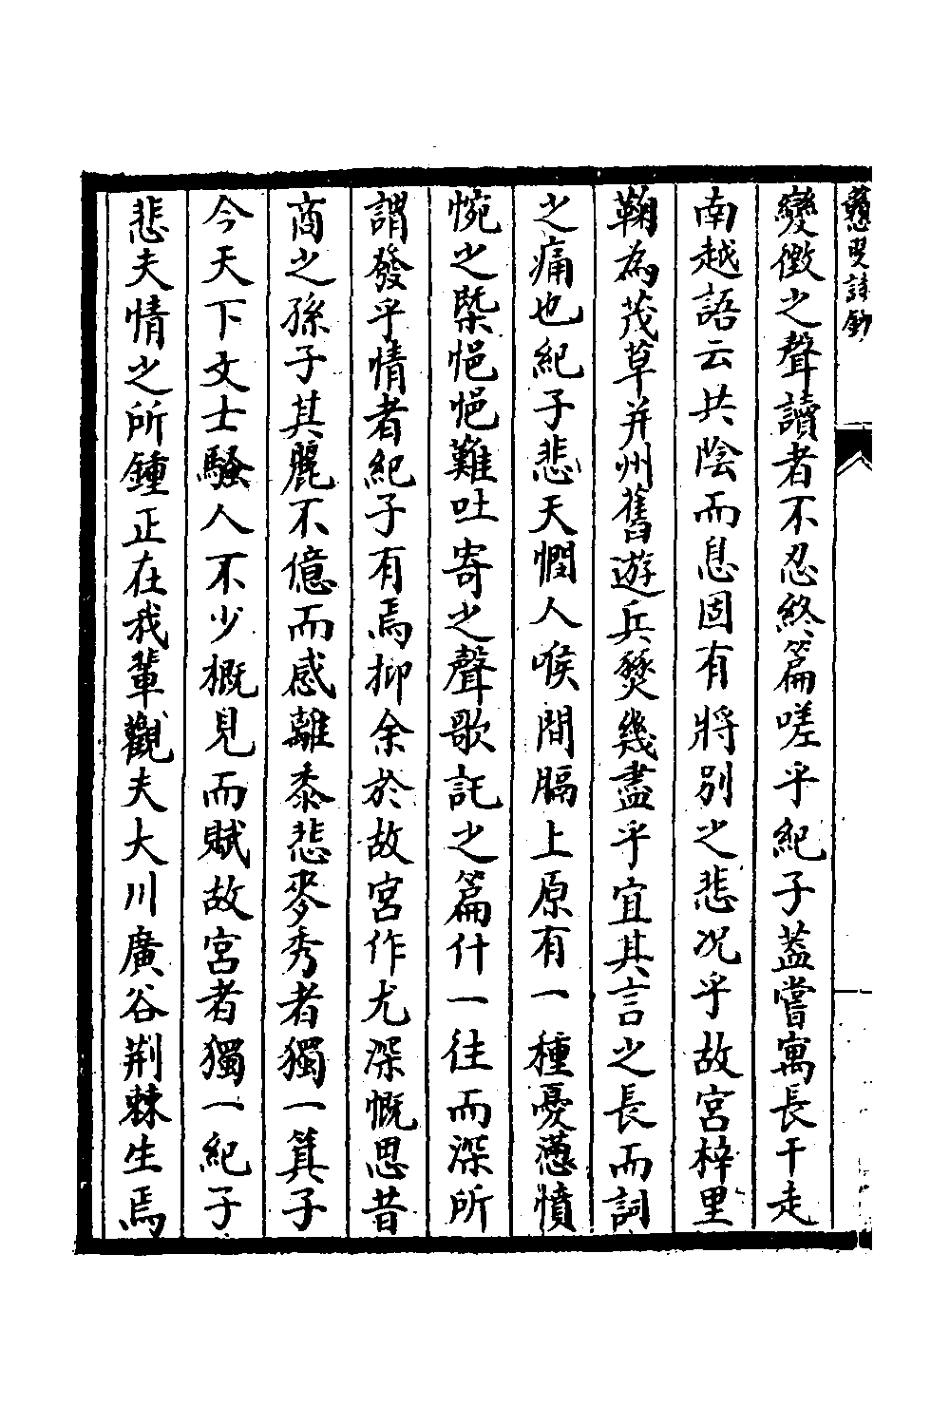 戇叟詩鈔
變徵之聲讀者不忍終篇嗟乎紀子葢嘗寓長干走
南越語云共陰而息固有將別之悲况乎故宮梓里
鞠為茂草并州舊遊兵燹幾盡乎宜其言之長而詞
之痛也紀子悲天憫人喉間膈上原有一種憂懣憤
惋之槩悒悒難吐寄之聲歌託之篇什一往而深所
謂發乎情者紀子有焉抑余於故宮作尤深慨思昔
商之孫子其麗不億而感離黍悲麥秀者獨一箕子
今天下文士騷人不少概見而賦故宮者獨一紀子
悲夫情之所鍾正在我輩觀夫大川廣谷荆棘生焉